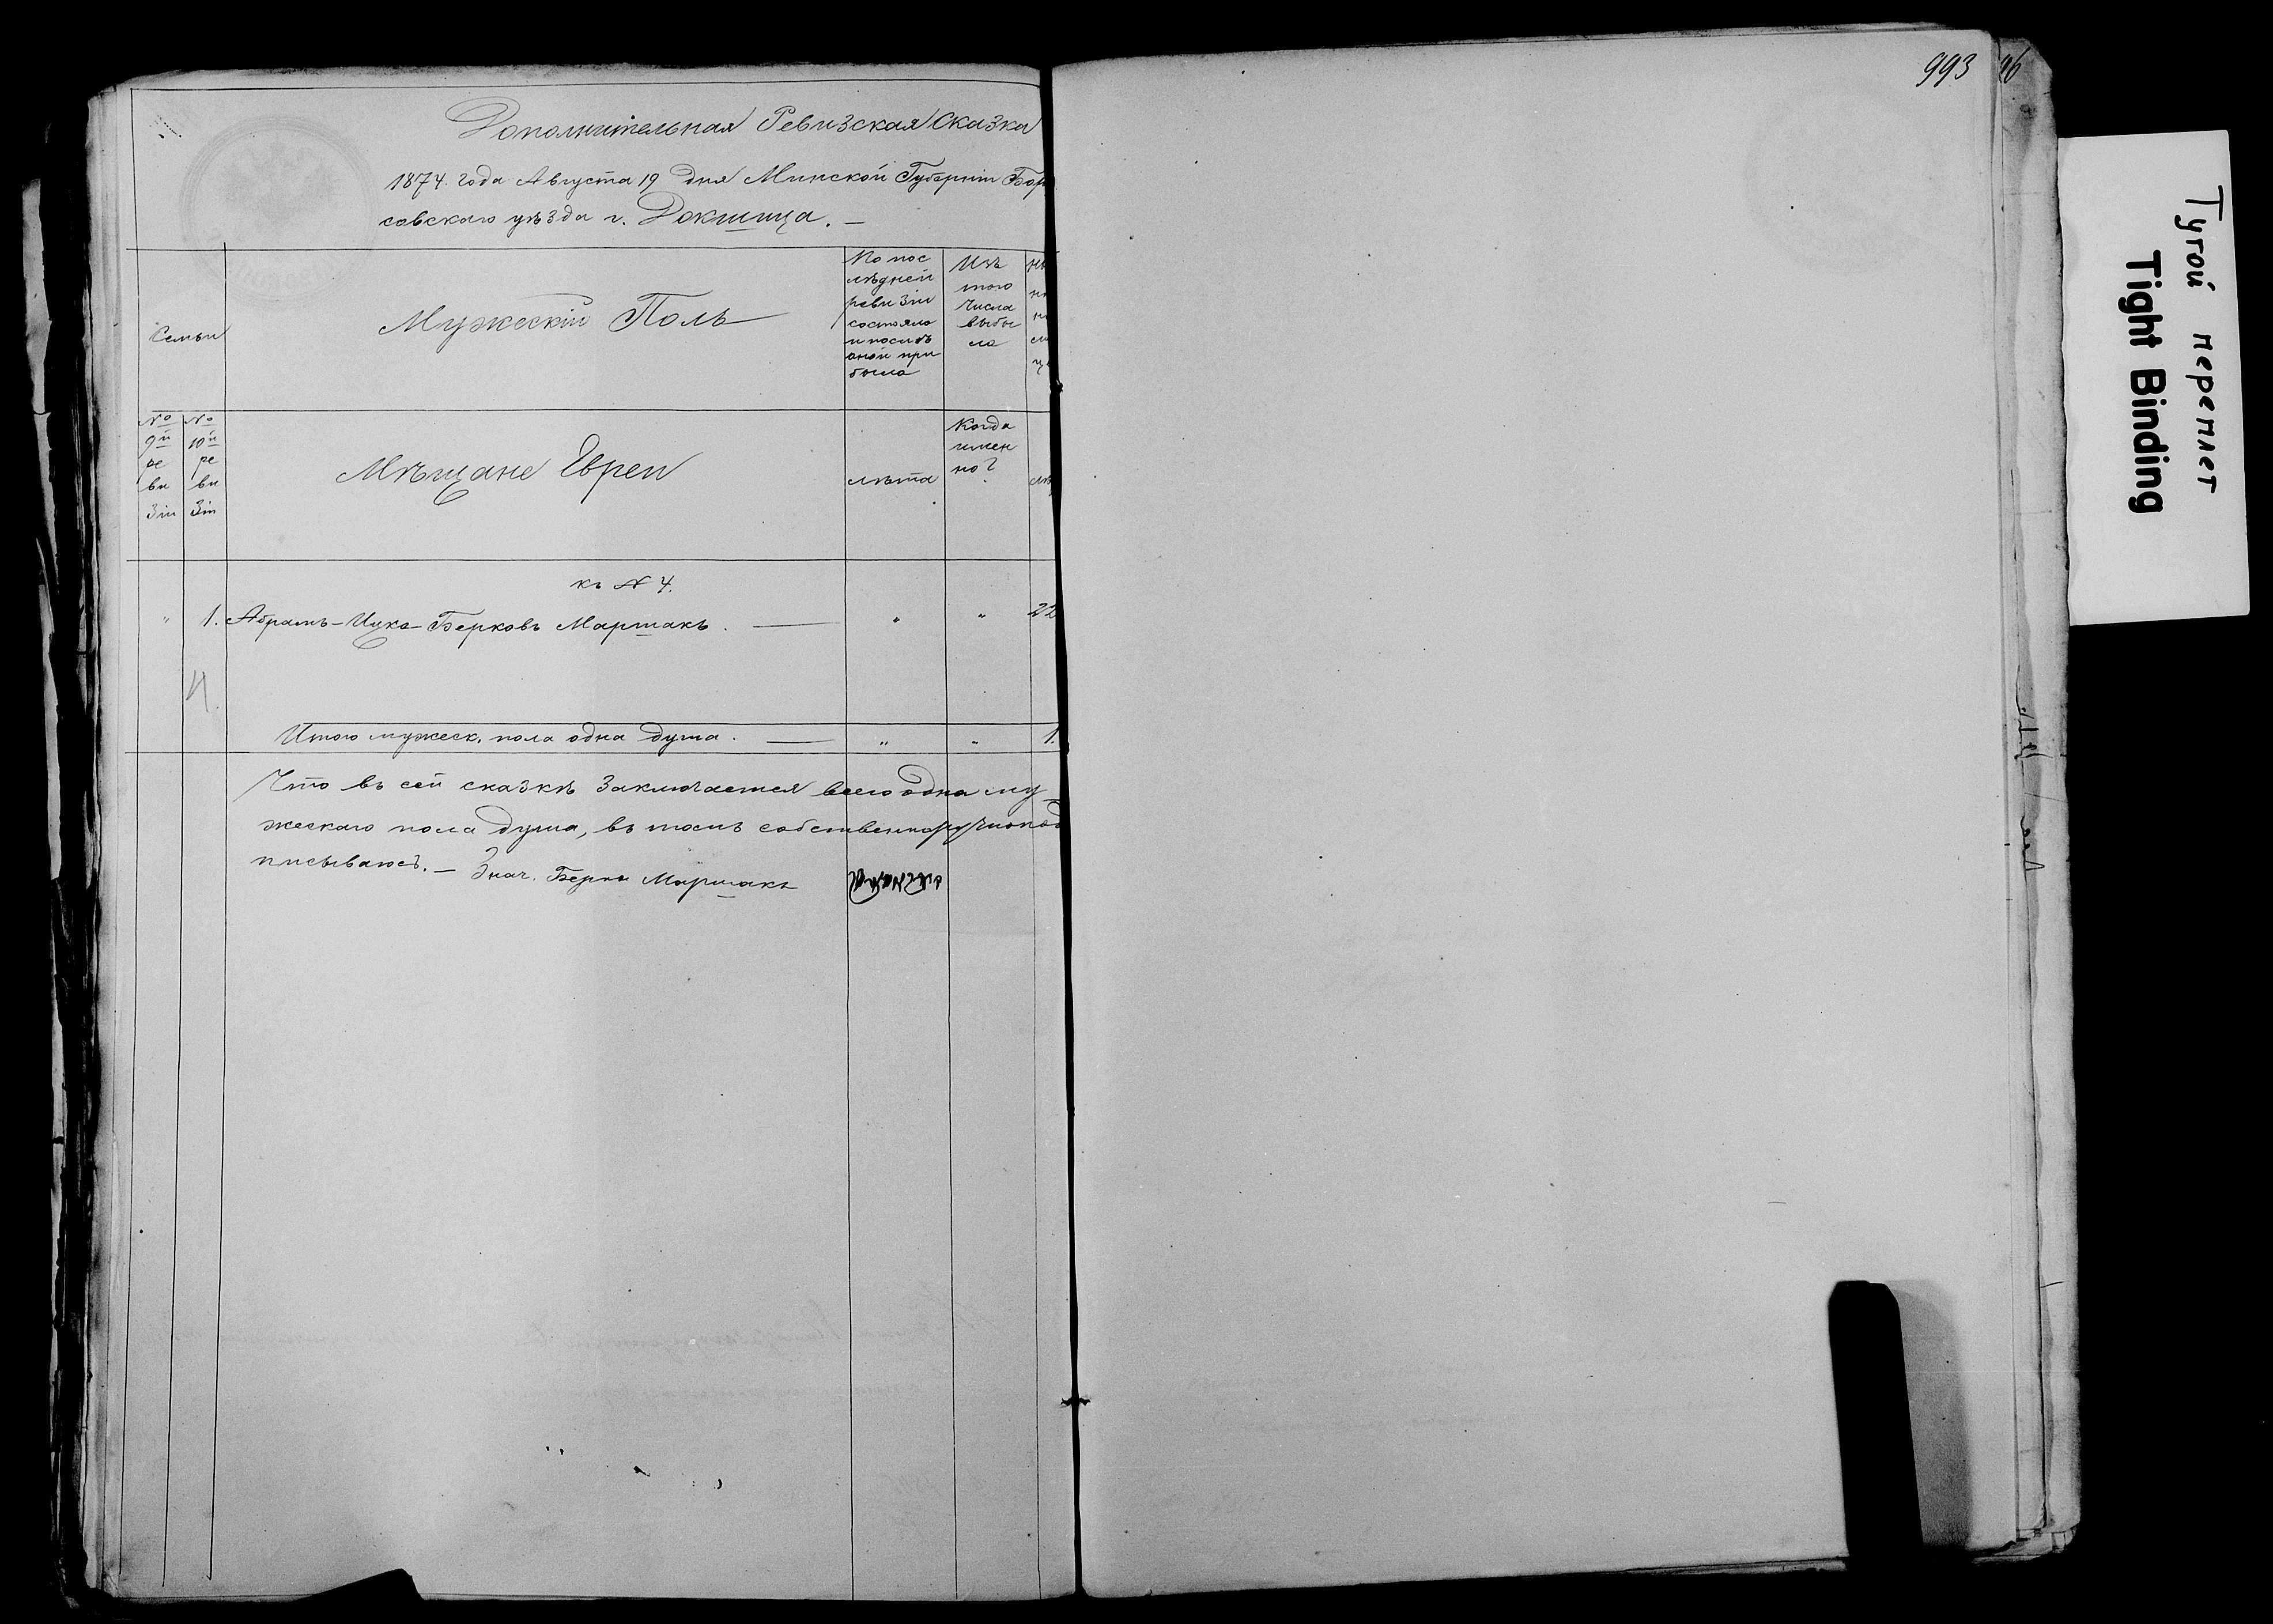 Дополнительная Ревизская Сказка
1874. года Августа 19 дня Минской Губерніи Бори
совскаго уѣзда г. Докшица. —
Семьи
Мужескій Полъ
По пос
лѣдней
ревизіи
состояло
и послѣ
оной при
было
Изъ
того
числа
выбы
ло
№
9й
ре
ви
зіи
№
10й
ре
ви
зіи
Мѣщане Евреи
лѣта
Когда
имен
но?
къ № 4.
" 1. Абрамъ-Ицка Берковъ Маршакъ. — " " 22
4.
Итого мужеск. пола одна душа. — " " 1.
Что въ сей сказкѣ заключается всего одна му
жескаго пола душа, въ томъ собственноручно под
писываюсь. — Знач. Берка Маршакъ
993
Тугой переплет
Tight Binding